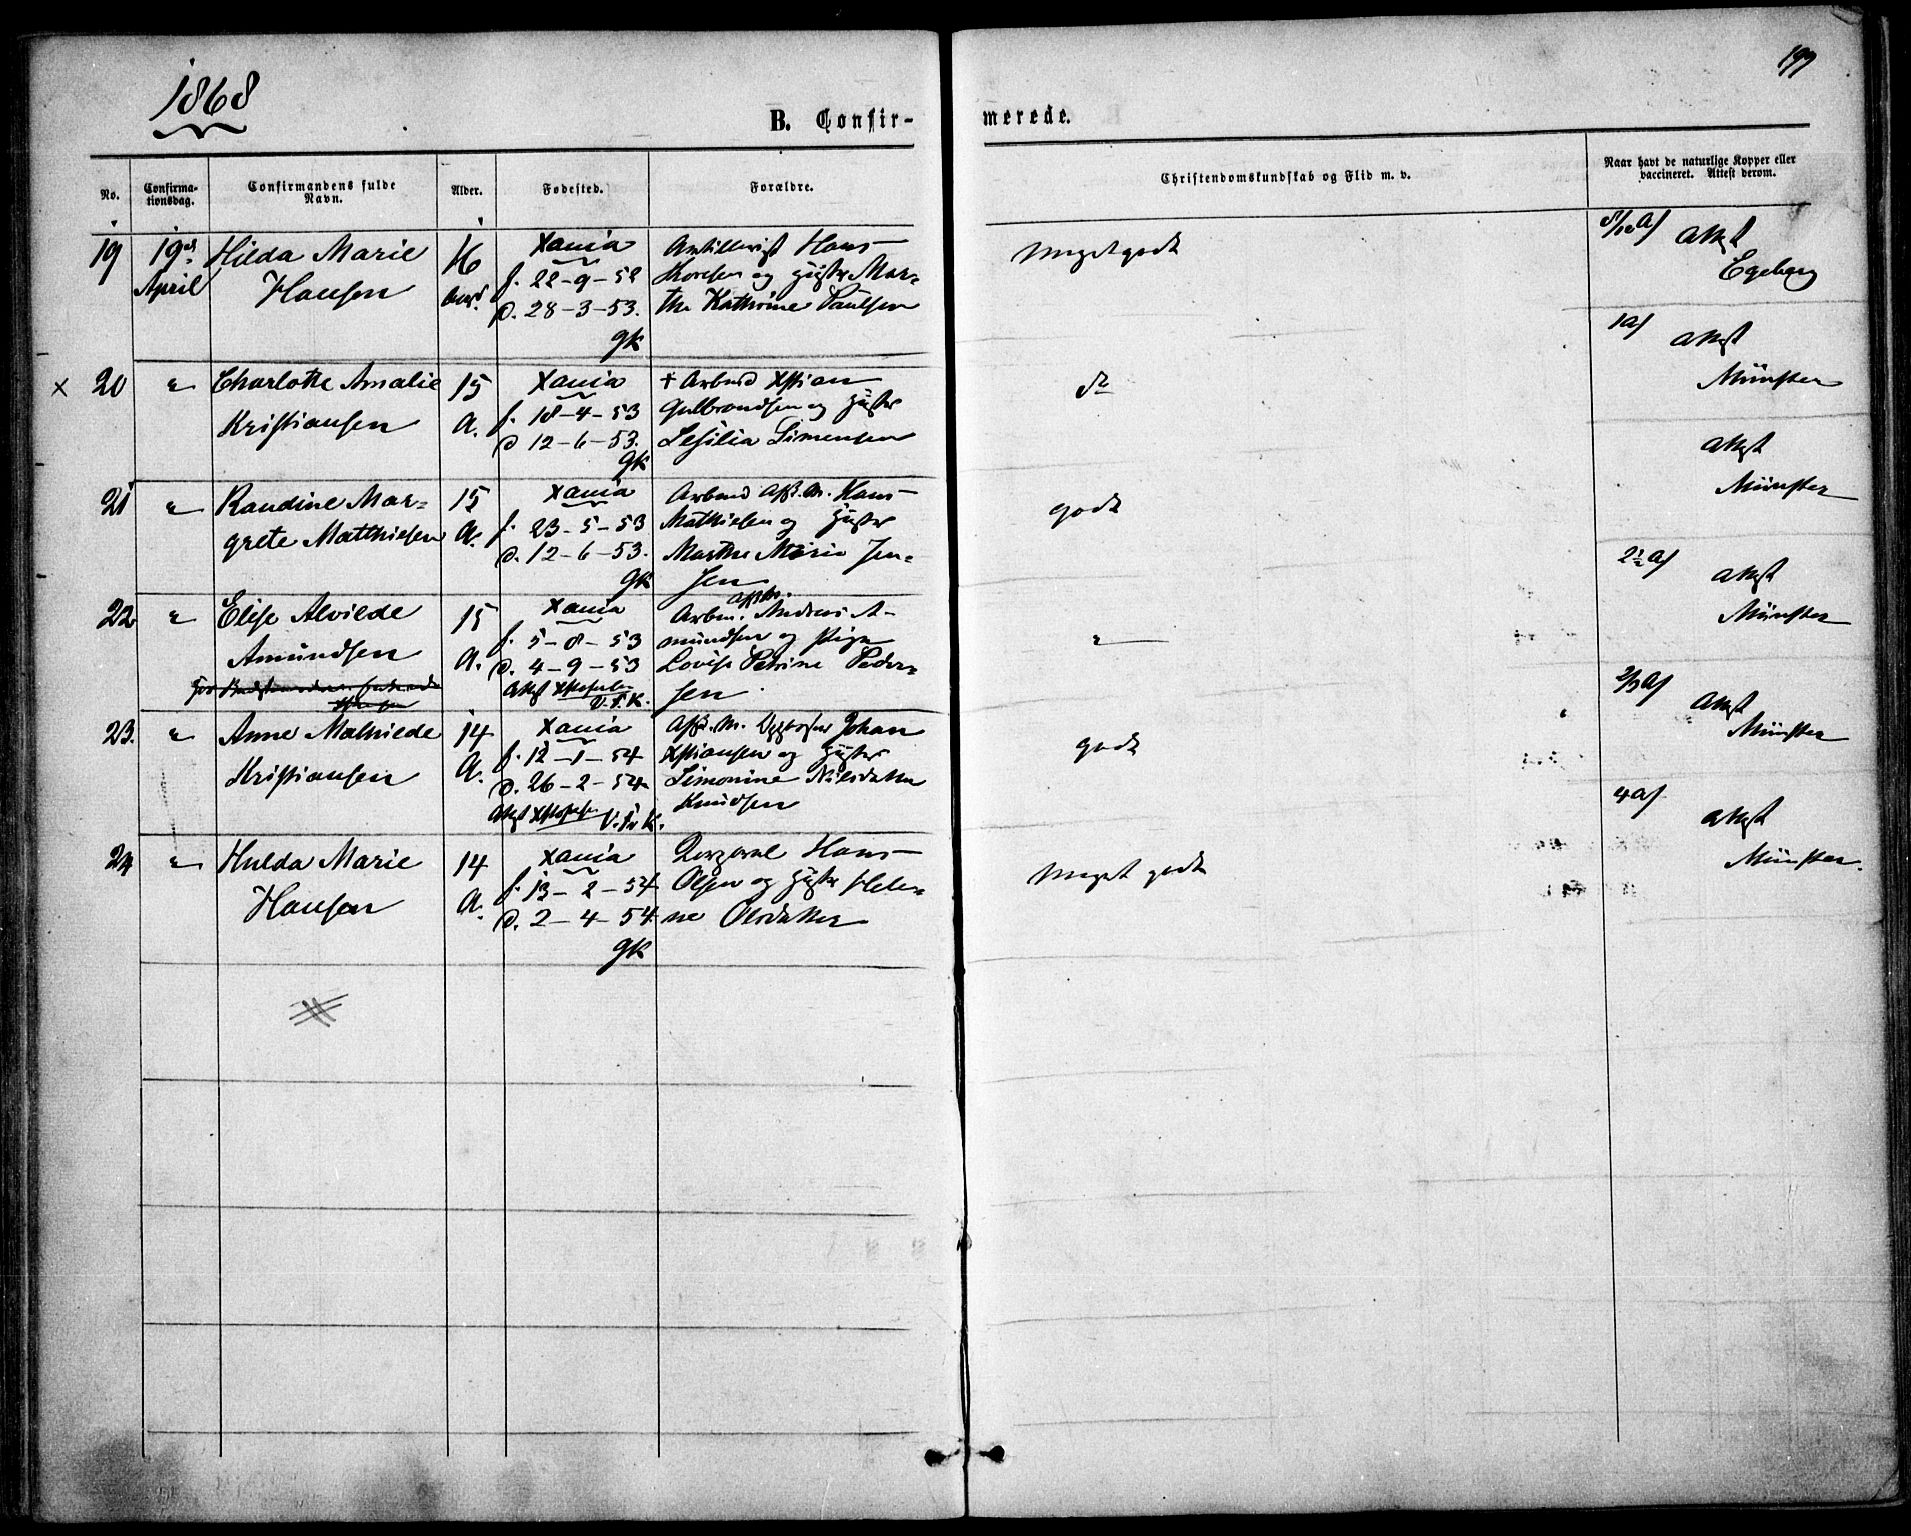 1868
199
B. Confir-
merede.
No.
Confirma-
tionsdag.
Confirmandens fulde
Navn.
Alder.
Fødested.
Forældre.
Christendomskundskab og Flid m. v.
Naar havt de naturlige Kopper eller
vaccineret. Attest derom.
19
19de
April
Hilda Marie
Hansen
16
Xania
f. 22-9-52
d. 28-3-53.
gk
Artillerist Hans
og Hustr Mar-
the Kathrine Paulsen
Meget godt
Attest
Egeberg
× 20
"
Charlotte Amalie
Kristiansen
15
A.
Xania
f. 18-4-53
d 12-6-53.
gk
† Arbmd Xstian
Gulbrandsen og Hustr
Sesilia Simensen
do
1 A/
Attest
Münster
21
"
Randine Mar-
grete Matthiesen
15
A.
Xania
f. 23-5-53
d. 12-6-53.
gk
Arbmd Afsk. M. Hans
Mathiesen og Hustr
Marthe Marie Jen-
sen
godt
Attest
Münster
22
"
Elise Alvilde
Amundsen
15
A.
Xania
f. 5-8-53
d. 4-9-53
Attest
V.F.K.
Arbm. Andreas A-
mundsen og Pige
Lovise Petrine Peder-
sen
"
2½ A/
Attest
Münster
23.
"
Anne Mathilde
Kristiansen
14
A.
Xania
f. 12-1-54
d. 26-2-54
Attest
V.F.K.
Afsk. M. Johan
Xstiansen og Hustr
Simonine Nilsdatter
Knudsen
godt
2/3 A/
Attest
Münster
24
"
Hulda Marie
Hansen
14
A.
Xania
f. 13-2-54
d. 2-4-54
gk
Corporal Hans
Olsen og Hustr Hele-
ne Olsdatter
Meget godt
4 A/
Attest
Münster.